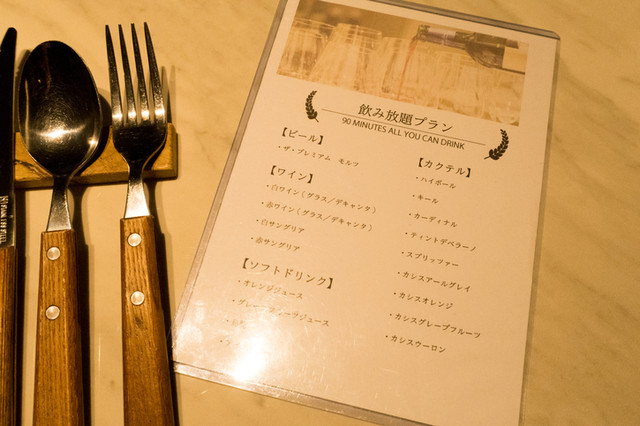 飲み放題プラン
90 MINUTES ALL YOU CAN DRINK
【ビール】
・ザ・プレミアム　モルツ
【ワイン】
・白ワイン（グラス／デキャンタ）
・赤ワイン（グラス／デキャンタ）
・白サングリア
・赤サングリア
【ソフトドリンク】
・オレンジジュース
・グレープフルーツジュース
【カクテル】
・ハイボール
・キール
・カーディナル
・ティントデベラーノ
・スプリッツァー
・カシスアールグレイ
・カシスオレンジ
・カシスグレープフルーツ
・カシスウーロン